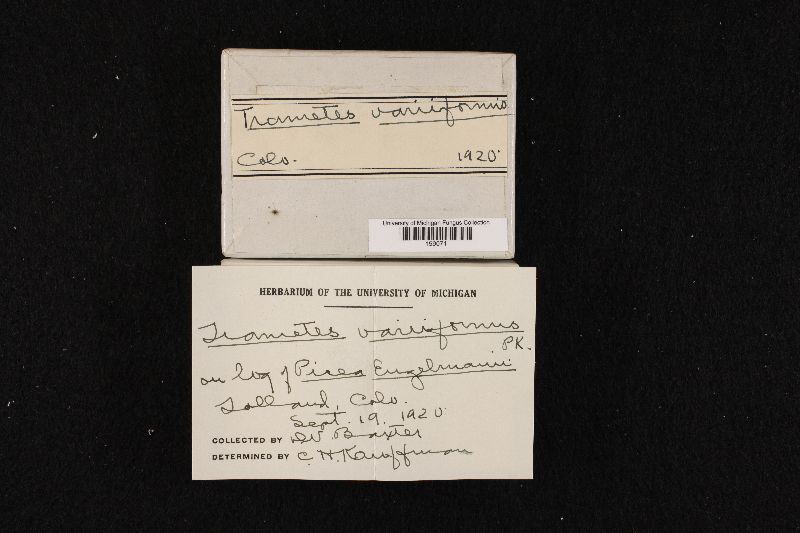 Trametes variiformis
Colo. 1920
University of Michigan Fungus Collection
159071
HERBARIUM OF THE UNIVERSITY OF MICHIGAN
Trametes variiformis
PK.
on log of Picea Engelmanni
Tolland, Colo.
Sept. 19, 1920
COLLECTED BY D.V. Baxter
DETERMINED BY C. H. Kauffman